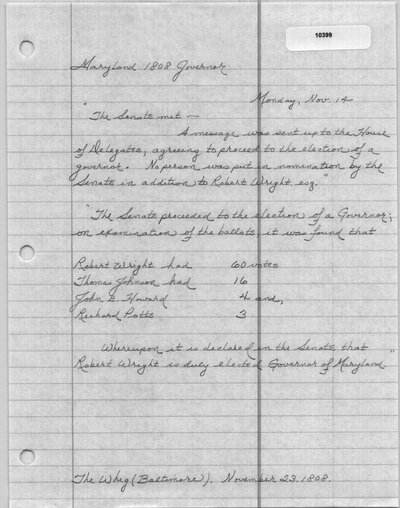 10399
Maryland 1808 Governor
Monday, Nov. 14
"The Senate met —
A message was sent up to the House
of Delegates, agreeing to proceed to the election of a
governor. No person was put in nomination by the
Senate in addition to Robert Wright, esq."
"The Senate proceeded to the election of a Governor;
on examination of the ballots, it was found that
Robert Wright had 60 votes
Thomas Johnson had 16
John E. Howard 4 and,
Richard Potts 3
Whereupon it is declared in the Senate that
Robert Wright is duly elected Governor of Maryland"
The Whig (Baltimore). November 23, 1808.